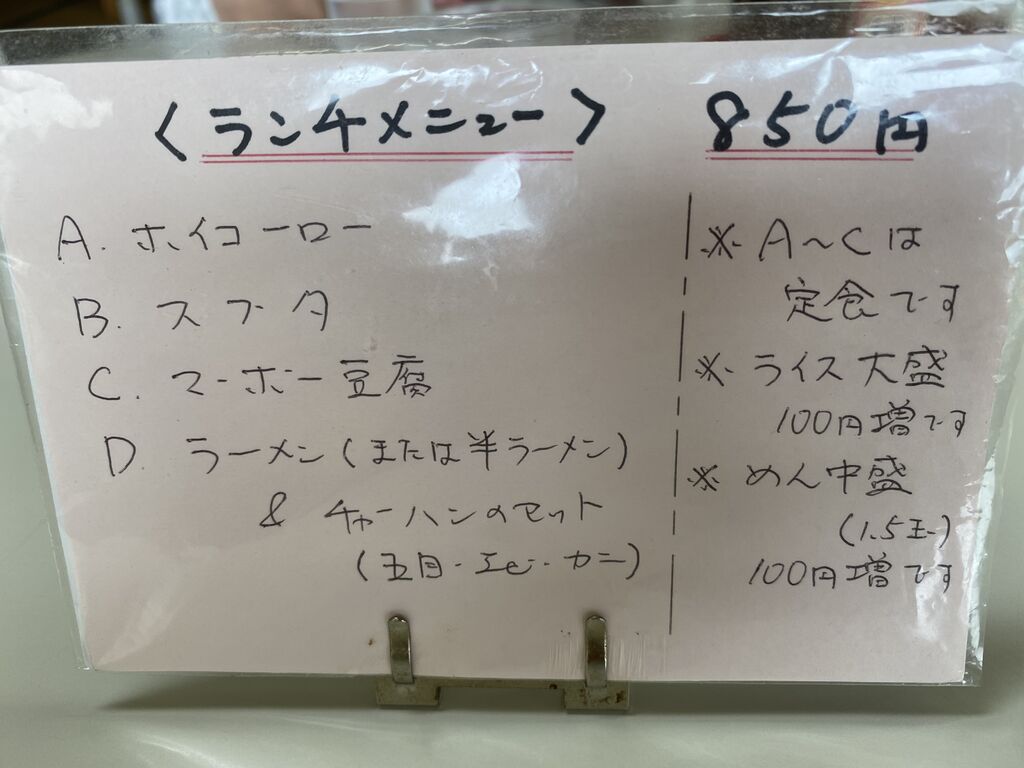 〈ランチメニュー〉 850円
A. ホイコーロー
B. スブタ
C. マーボー豆腐
D. ラーメン(または半ラーメン)
& チャーハンのセット
(五目・エビ・カニ)
※ A〜Cは
定食です
※ ライス大盛
100円増です
※ めん中盛
(1.5玉)
100円増です